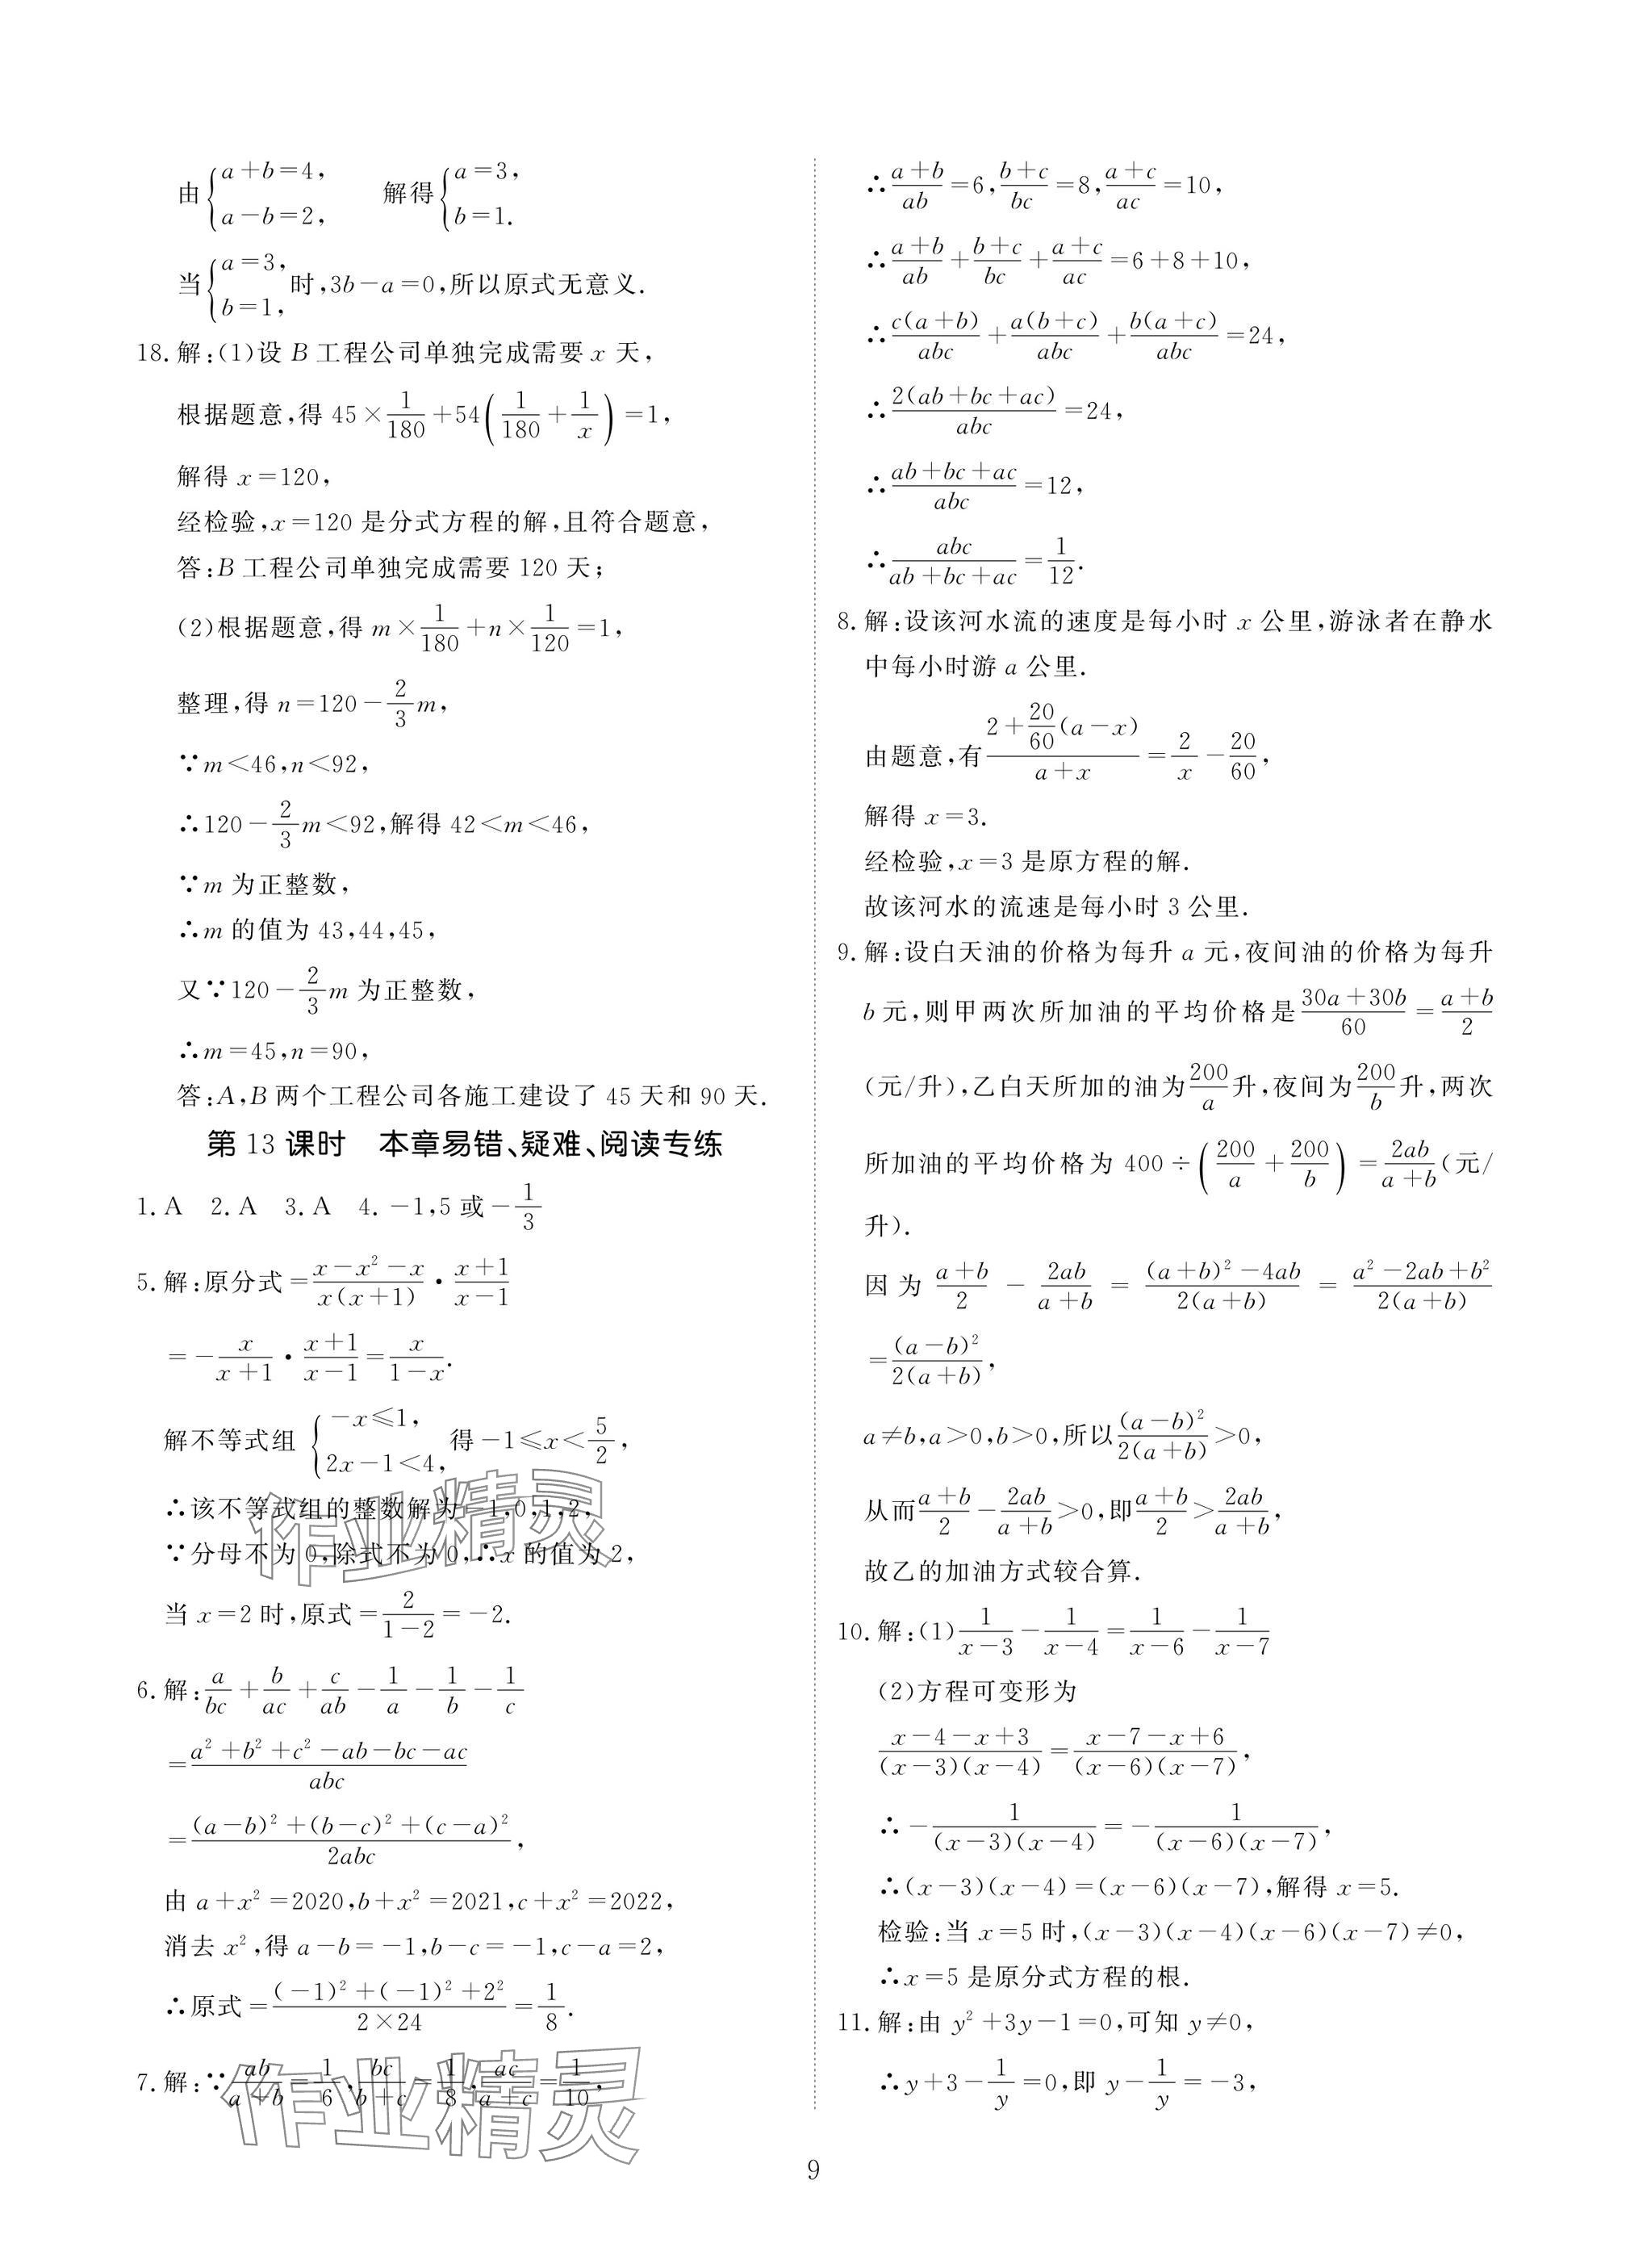 由{a+b=4, a-b=2, 解得{a=3, b=1.
当{a=3, b=1, 时,3b-a=0,所以原式无意义.
18.解:(1)设 B 工程公司单独完成需要 x 天,
根据题意,得 45×1/180+54(1/180+1/x)=1,
解得 x=120,
经检验,x=120 是分式方程的解,且符合题意,
答:B 工程公司单独完成需要 120 天;
(2)根据题意,得 m×1/180+n×1/120=1,
整理,得 n=120-2/3m,
∵m<46,n<92,
∴120-2/3m<92,解得 42<m<46,
∵m 为正整数,
∴m 的值为 43,44,45,
又∵120-2/3m 为正整数,
∴m=45,n=90,
答:A,B 两个工程公司各施工建设了 45 天和 90 天.
第 13 课时 本章易错、疑难、阅读专练
1.A 2.A 3.A 4.-1,5 或-1/3
5.解:原分式=(x-x²-x)/(x(x+1))·(x+1)/(x-1)
=-x/(x+1)·(x+1)/(x-1)=x/(1-x).
解不等式组{-x≤1, 2x-1<4, 得-1≤x<5/2,
∴该不等式组的整数解为-1,0,1,2,
∵分母不为 0,除式不为 0,∴x 的值为 2,
当 x=2 时,原式=2/(1-2)=-2.
6.解:a/bc+b/ac+c/ab-1/a-1/b-1/c
=(a²+b²+c²-ab-bc-ac)/abc
=((a-b)²+(b-c)²+(c-a)²)/2abc,
由 a+x²=2020,b+x²=2021,c+x²=2022,
消去 x²,得 a-b=-1,b-c=-1,c-a=2,
∴原式=((-1)²+(-1)²+2²)/(2×24)=1/8.
7.解:∵ab/(a+b)=1/6,bc/(b+c)=1/8,ac/(a+c)=1/10,
∴(a+b)/ab=6,(b+c)/bc=8,(a+c)/ac=10,
∴(a+b)/ab+(b+c)/bc+(a+c)/ac=6+8+10,
∴c(a+b)/abc+a(b+c)/abc+b(a+c)/abc=24,
∴2(ab+bc+ac)/abc=24,
∴(ab+bc+ac)/abc=12,
∴abc/(ab+bc+ac)=1/12.
8.解:设该河水流的速度是每小时 x 公里,游泳者在静水
中每小时游 a 公里.
由题意,有(2+20/60(a-x))/(a+x)=2/x-20/60,
解得 x=3.
经检验,x=3 是原方程的解.
故该河水的流速是每小时 3 公里.
9.解:设白天油的价格为每升 a 元,夜间油的价格为每升
b 元,则甲两次所加油的平均价格是(30a+30b)/60=(a+b)/2
(元/升),乙白天所加的油为200/a升,夜间为200/b升,两次
所加油的平均价格为 400÷(200/a+200/b)=2ab/(a+b)(元/
升).
因为(a+b)/2-2ab/(a+b)=((a+b)²-4ab)/(2(a+b))=(a²-2ab+b²)/(2(a+b))
=(a-b)²/(2(a+b)),
a≠b,a>0,b>0,所以(a-b)²/(2(a+b))>0,
从而(a+b)/2-2ab/(a+b)>0,即(a+b)/2>2ab/(a+b),
故乙的加油方式较合算.
10.解:(1)1/(x-3)-1/(x-4)=1/(x-6)-1/(x-7)
(2)方程可变形为
(x-4-x+3)/((x-3)(x-4))=(x-7-x+6)/((x-6)(x-7)),
∴-1/((x-3)(x-4))=-1/((x-6)(x-7)),
∴(x-3)(x-4)=(x-6)(x-7),解得 x=5.
检验:当 x=5 时,(x-3)(x-4)(x-6)(x-7)≠0,
∴x=5 是原分式方程的根.
11.解:由 y²+3y-1=0,可知 y≠0,
∴y+3-1/y=0,即 y-1/y=-3,
作业精灵
作业精灵
9